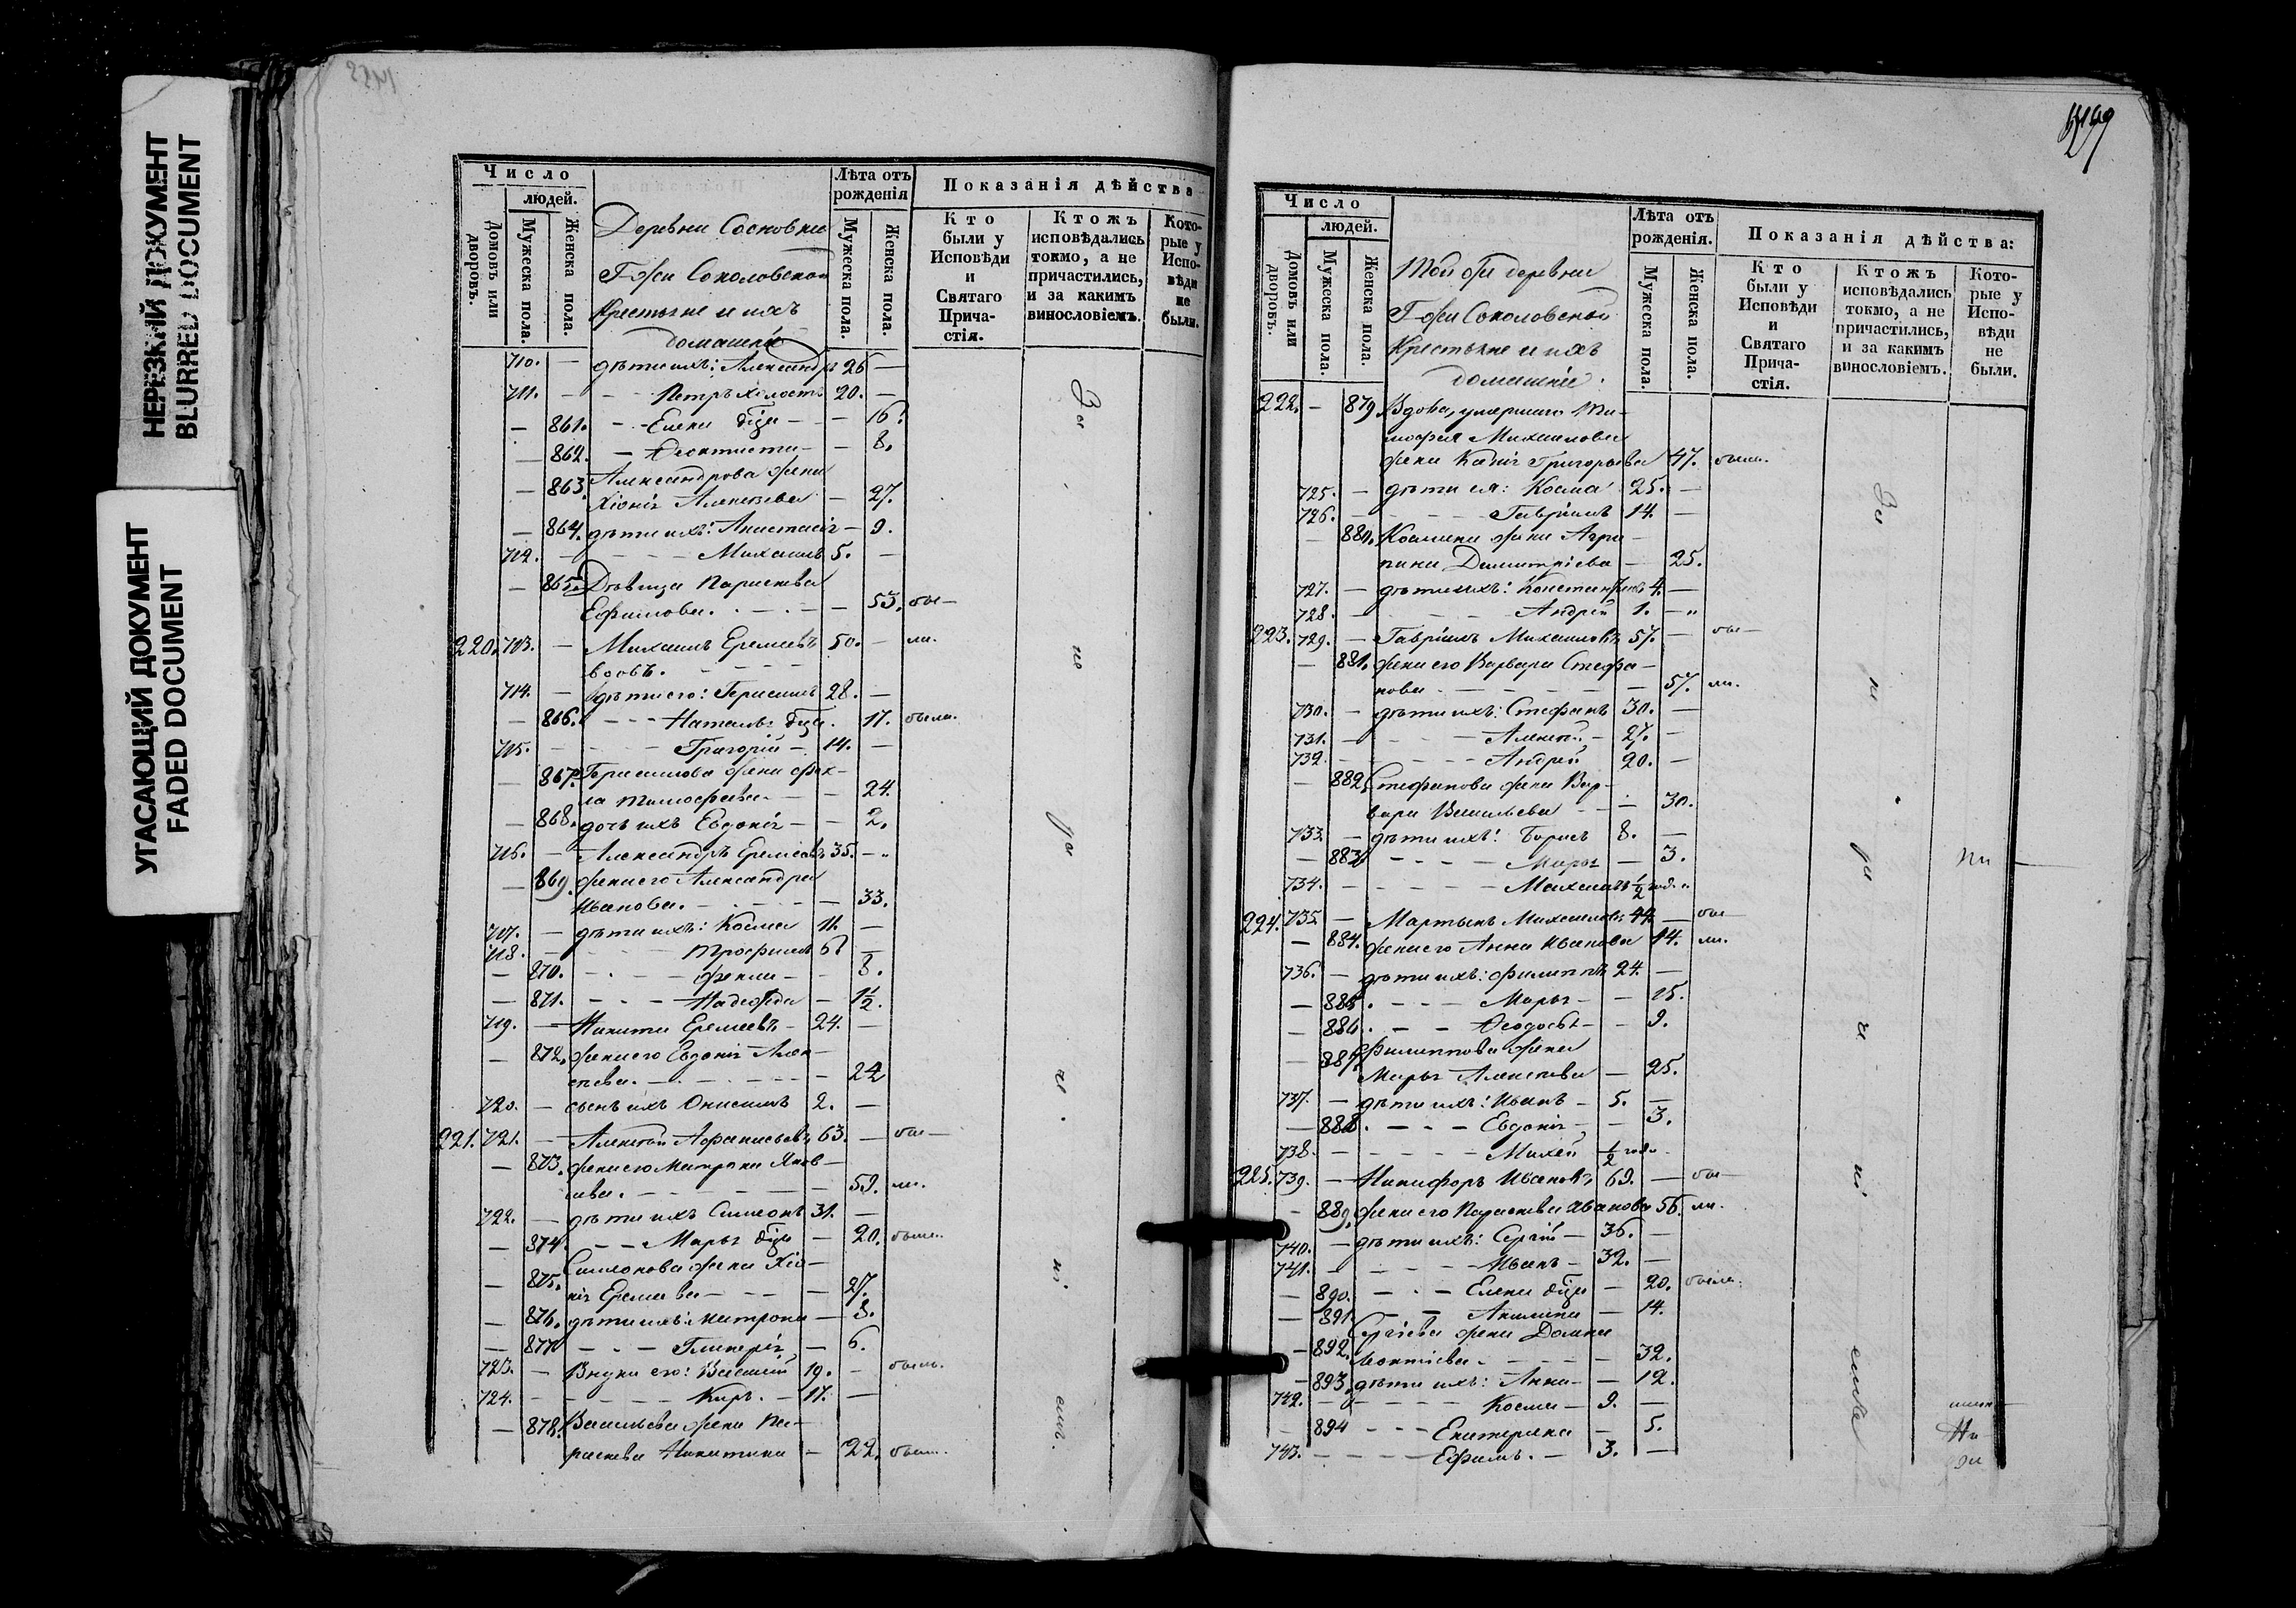 НЕРЕЗКИЙ ДОКУМЕНТ
BLURRED DOCUMENT
УГАСАЮЩИЙ ДОКУМЕНТ
FADED DOCUMENT
Число
людей.
Домовъ или дворовъ.
Мужеска пола.
Женска пола.
Деревни Сосновки
Г-жи Соколовской
Крестьяне и ихъ
домашніе
Лѣта отъ рожденія
Мужеска пола.
Женска пола.
Показанія дѣйства
Кто были у Исповѣди и Святаго Причастія.
Ктожъ исповѣдались токмо, а не причастились, и за какимъ винословіемъ.
Которые у Исповѣди не были.
710. — дѣти ихъ: Александръ 26 —
711. — — Петръ холостъ 20. —
— 861. — Елена дѣца — 16.
— 862. — Феоктиста — 8.
— 863. Александрова жена
Хіонія Алексѣева — 27.
— 864. дѣти ихъ: Анастасія — 9.
712. — — Михаилъ 5. —
— 865. Дѣвица Параскева
Ефимова. — 53. бы—
220. 713. — Михаилъ Еремѣевъ 50. — ли.
вдовъ.
714. — дѣти его: Герасимъ 28. —
— 866. — Наталья дѣца. 17. были.
715. — — Григорій — 14. —
— 867. Герасимова жена Фек-
ла Тимофѣева — — 24.
— 868. дочь ихъ Евдокія — — 2.
716. — Александръ Еремѣевъ 35. —
— 869. жена его Александра
Иванова. — 33.
717. — дѣти ихъ: Косма 11. —
718. — — Трофимъ 6 —
— 870. — Фекла — 8.
— 871. — Надежда — 1½.
719. — Никита Еремѣевъ — 24. —
— 872. жена его Евдокія Алек-
сѣева. — 22
720. — сынъ ихъ Онисимъ 2. —
221. 721. — Алексѣй Афанасьевъ 63. — бы—
— 873. жена его Матрона Яков-
лева. — 59. ли.
722. — дѣти ихъ Симеонъ 31. —
— 874. — Марья дѣца — 20. были.
Симеонова жена Хіо-
— 875. нія Еремѣева — — 27.
— 876. дѣти ихъ: Матрона — 8.
— 877. — Гликерія — 6.
723. — Внуки его: Василій 19. — былъ.
724. — — Киръ. — 17. —
— 878. Васильева жена Па-
раскева Никитина — 22. были.
За не ра че ні емъ.
Число
людей.
Домовъ или дворовъ.
Мужеска пола.
Женска пола.
Той же деревни
Г-жи Соколовской
Крестьяне и ихъ
домашніе.
Лѣта отъ рожденія.
Мужеска пола.
Женска пола.
Показанія дѣйства:
Кто были у Исповѣди и Святаго Причастія.
Ктожъ исповѣдались токмо, а не причастились, и за какимъ винословіемъ.
Которые у Исповѣди не были.
222. — 879. Вдова, умершаго Ти-
мофея Михаилова
жена Григорьева 47. была.
725. — дѣти ея: Косма 25. —
726. — — Гавріилъ 14. —
— 880. Космина жена Агри-
пина Димитріева — 25.
727. — дѣти ихъ: Константинъ 4. —
728. — — Андрей 1. —
223. 729. — Гавріилъ Михаиловъ 57. — бы—
— 881. жена его Варвара Стефа-
нова — 57. ли.
730. — дѣти ихъ: Стефанъ 30. —
731. — — Алексѣй — 27. —
732. — — Андрей 20. —
— 882. Стефанова жена Вар-
вара Васильева — 30.
733. — дѣти ихъ: Борисъ 8. —
— 883. — Марья — 3.
734. — — Михаилъ ½ год.
224. 735. — Мартынъ Михаиловъ 44. — бы—
— 884. жена его Анна Иванова 44. ли.
736. — дѣти ихъ: Филиппъ 24. —
— 885. — Марья — 15.
— 886. — Феодосья — 9.
— 887. Филиппова жена
Марья Алексѣева — 25.
737. — дѣти ихъ: Иванъ — 5. —
— 888. — Евдокія — 3.
738. — — Михей ½ года.
225. 739. — Никифоръ Ивановъ 69. — бы—
— 889. жена его Параскева Иванова 56. ли.
740. — дѣти ихъ: Сергій — 36. —
741. — — Иванъ — 32. —
— 890. — Елена дѣца — 20. были.
— 891. — Акилина — 14.
Сергіева жена Домна
— 892. Леонтіева. — 32.
— 893. дѣти ихъ: Анна — — 12.
742. — — Косма — 9. —
— 894 — Екатерина — 5.
743. — — Ефимъ. — 3. —